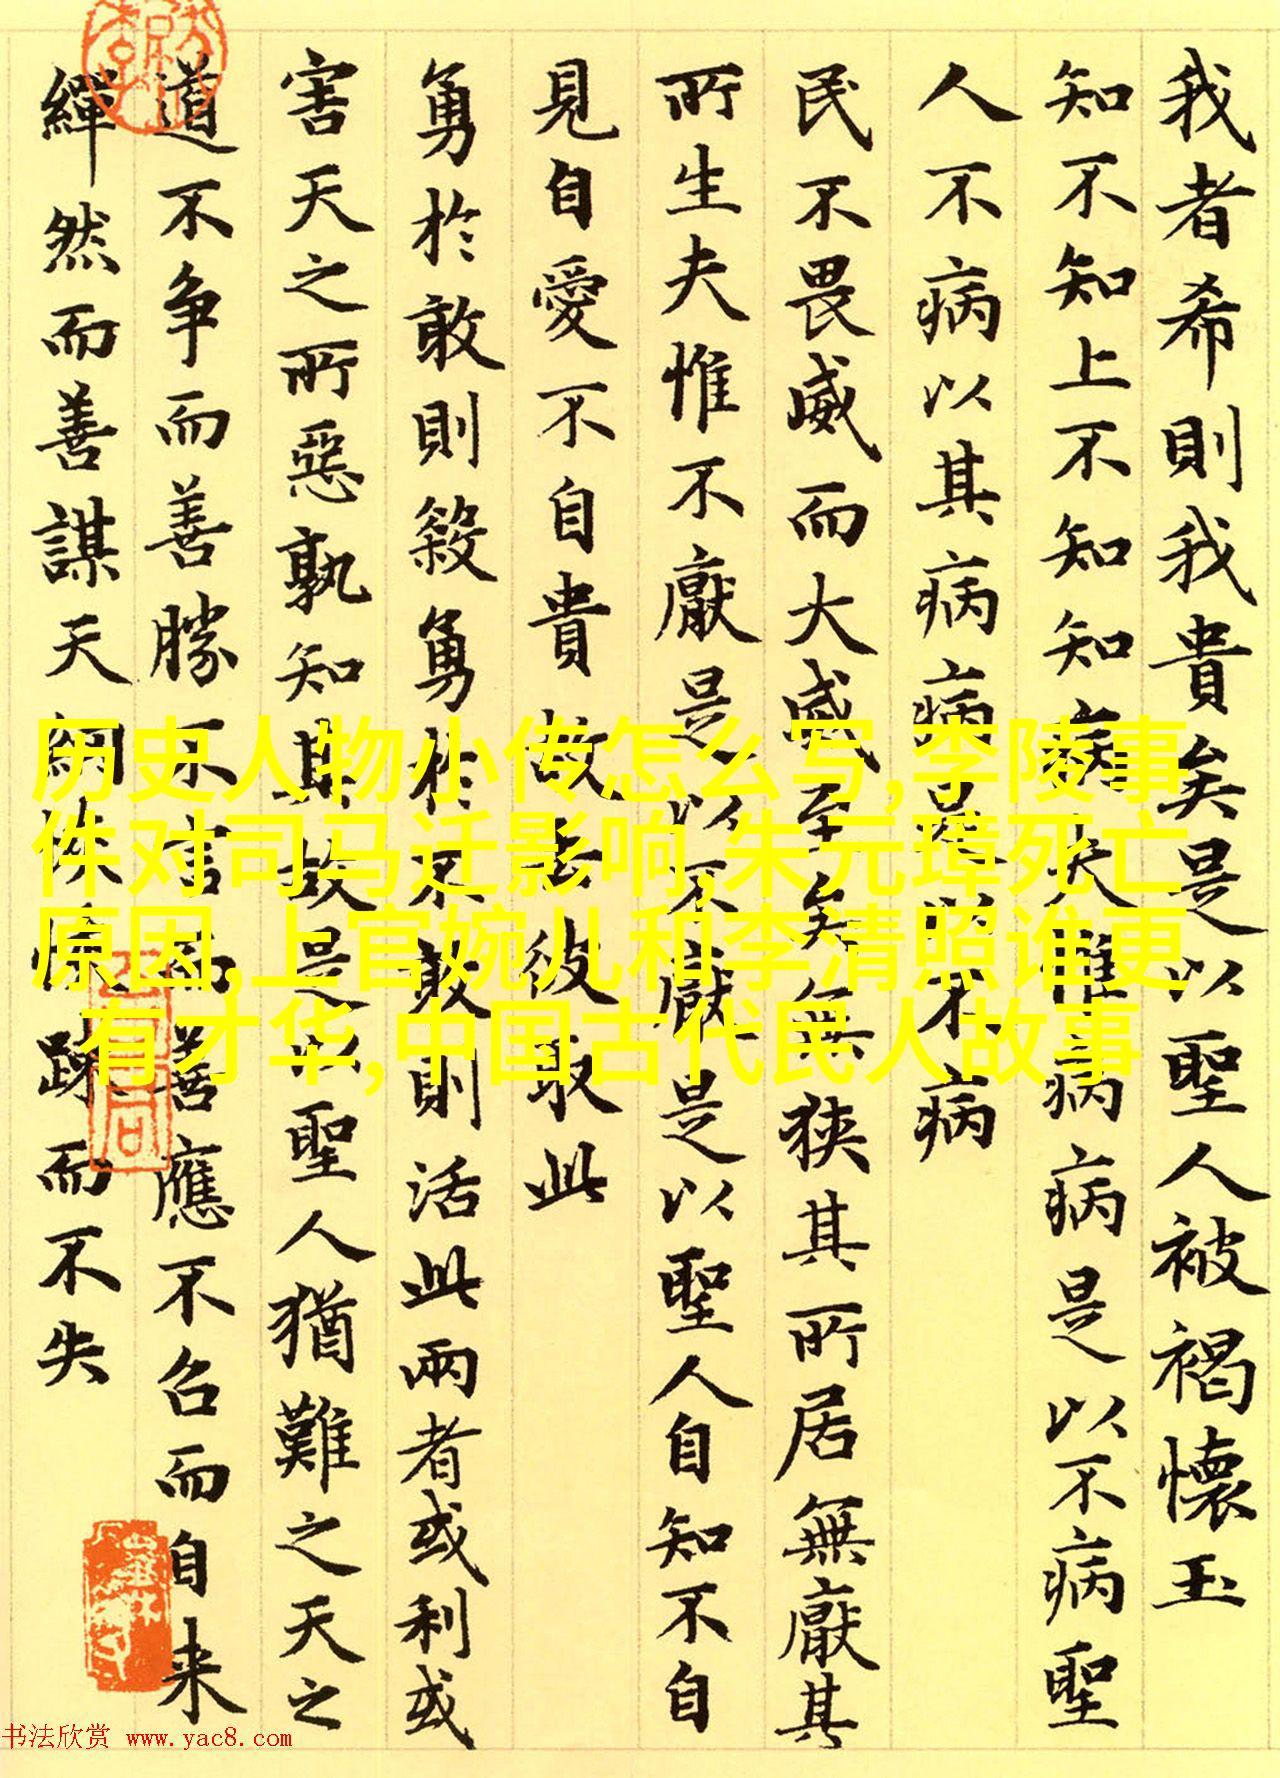 我者希則我貴矣是以聖人被褐懷玉
知不知上不知知病夫惟病病是以不病聖
人不病以其病病是以不病
民不畏威而大威至矣無狹其所居無厭其
所生夫惟不厭是以不厭是以聖人自知不自
見自愛不自貴故去彼取此
勇於敢則殺勇於不敢則活此兩者或利或
害天之所惡孰知其故是以聖人猶難之天之
道不争而善勝不言而善應不召而自来
繟然而善謀天網恢恢踈而不失
历史人物小传怎么写,李陵事
件对司马迁影响,朱元璋死亡
原因,上官婉儿和李清照谁更
有才华,中国古代民人故事
书法欣赏 www.yac8.com